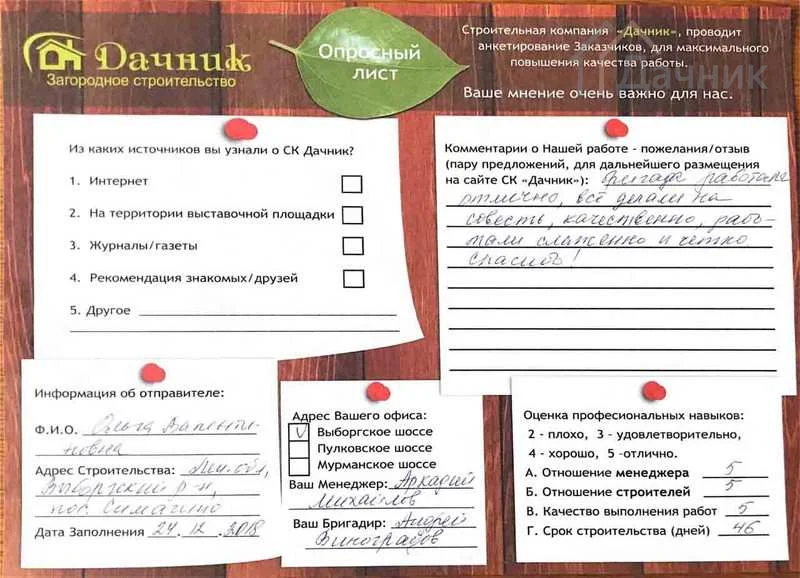 Дачник
Загородное строительство
Опросный
лист
Строительная компания «Дачник», проводит
анкетирование Заказчиков, для максимального
повышения качества работы.
Дачник
Ваше мнение очень важно для нас.
Из каких источников вы узнали о СК Дачник?
1. Интернет
2. На территории выставочной площадки
3. Журналы/газеты
4. Рекомендация знакомых/друзей
5. Другое
Комментарии о Нашей работе - пожелания/отзыв
(пару предложений, для дальнейшего размещения
на сайте СК «Дачник»): Бригада работала
отлично, всё делали на
совесть, качественно, рабо-
тали слаженно и четко
спасибо!
Информация об отправителе:
Ф.И.О. Ольга Валенти-
новна
Адрес Строительства: Лен.обл,
Выборгский р-н,
пос. Симагино
Дата Заполнения 24.12.2018
Адрес Вашего офиса:
V Выборгское шоссе
Пулковское шоссе
Мурманское шоссе
Ваш Менеджер: Аркадий
Михайлов
Ваш Бригадир: Андрей
Виноградов
Оценка профессиональных навыков:
2 - плохо, 3 - удовлетворительно,
4 - хорошо, 5 -отлично.
А. Отношение менеджера 5
Б. Отношение строителей 5
В. Качество выполнения работ 5
Г. Срок строительства (дней) 46